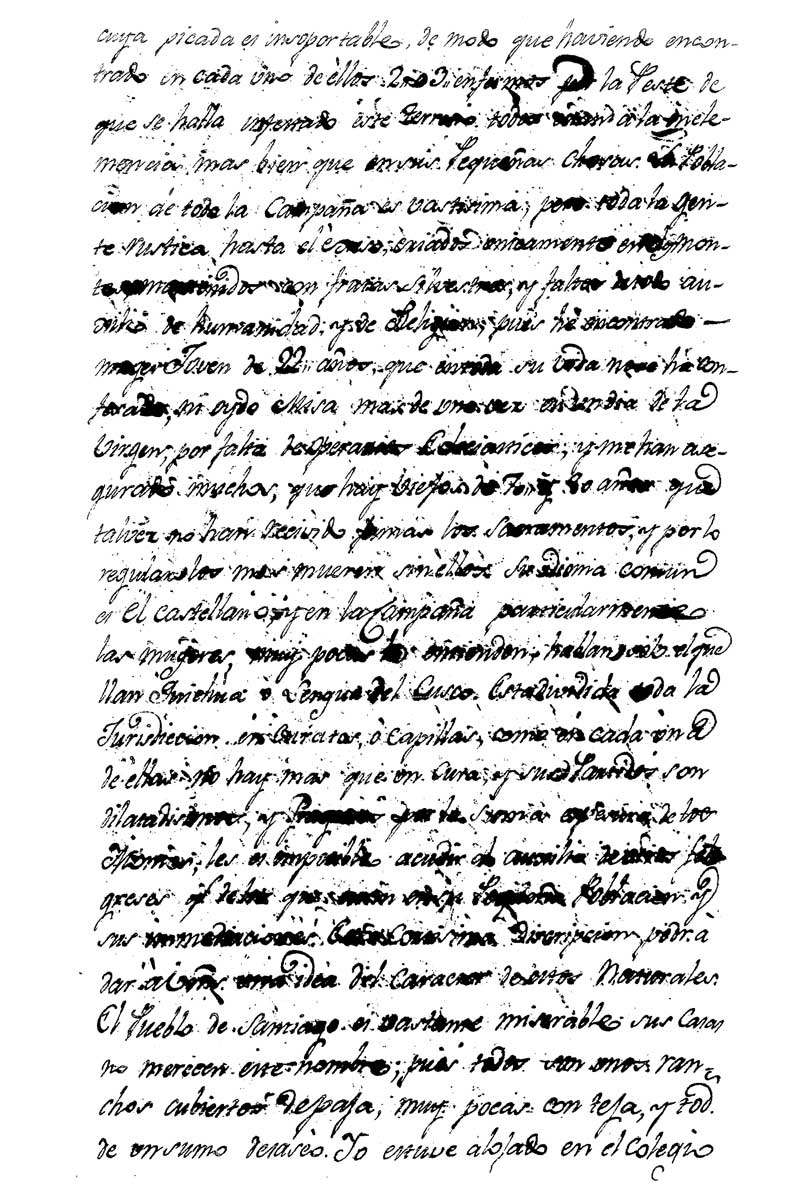 cuya picada es insoportable, de modo que haviendo encon-
trado en cada uno de ellos 2. o 3. enfermos por la Peste de
que se halla infestado este terreno, todos a la incle-
mencia, mas bien que en sus Pequeñas Chozas. La Pobla-
cion de toda la Campaña es vastisima, pero toda la gen-
te rustica hasta el criados unicamente en
con frutas silvestres, y faltos de todo au-
xilio de humanidad, y de Religion, pues he encontrado
muger Joven de 22. años, que en toda su vida no se ha con-
fesado, ni oydo Misa mas de una vez en un dia de la
Virgen, por falta de operarios , y me han ase-
gurado muchos, que hay viejos de 70, y 80 años que
talvez no han recivido jamas los Sacramentos, y por lo
regular los mas mueren sin ellos. Su idioma comun
es el Castellano, y en la Campaña particularmente
las mugeres, muy pocas lo entienden, hablan solo el que
llan Quichua o Lengua del Cusco. Esta dividida toda la
Jurisdiccion en Curatos, ò Capillas, como en cada una
de ellas no hay mas que un Cura, y sus Partidos son
dilatadisimos, y por la suma de los
les es imposible acudir al auxilio de otros feli-
greses qe. de los que estan en su Pequeña Poblacion y
sus immediaciones. Esta Cortisima Discripcion podrà
dar à una idea del Caracter de estos Naturales.
El Pueblo de Santiago es vastante miserable sus Casas
no merecen este nombre, pues todos son unos ran-
chos cubiertos de paja, muy pocas con teja, y tod.
de un sumo desaseo. Yo estuve alojado en el Colegio